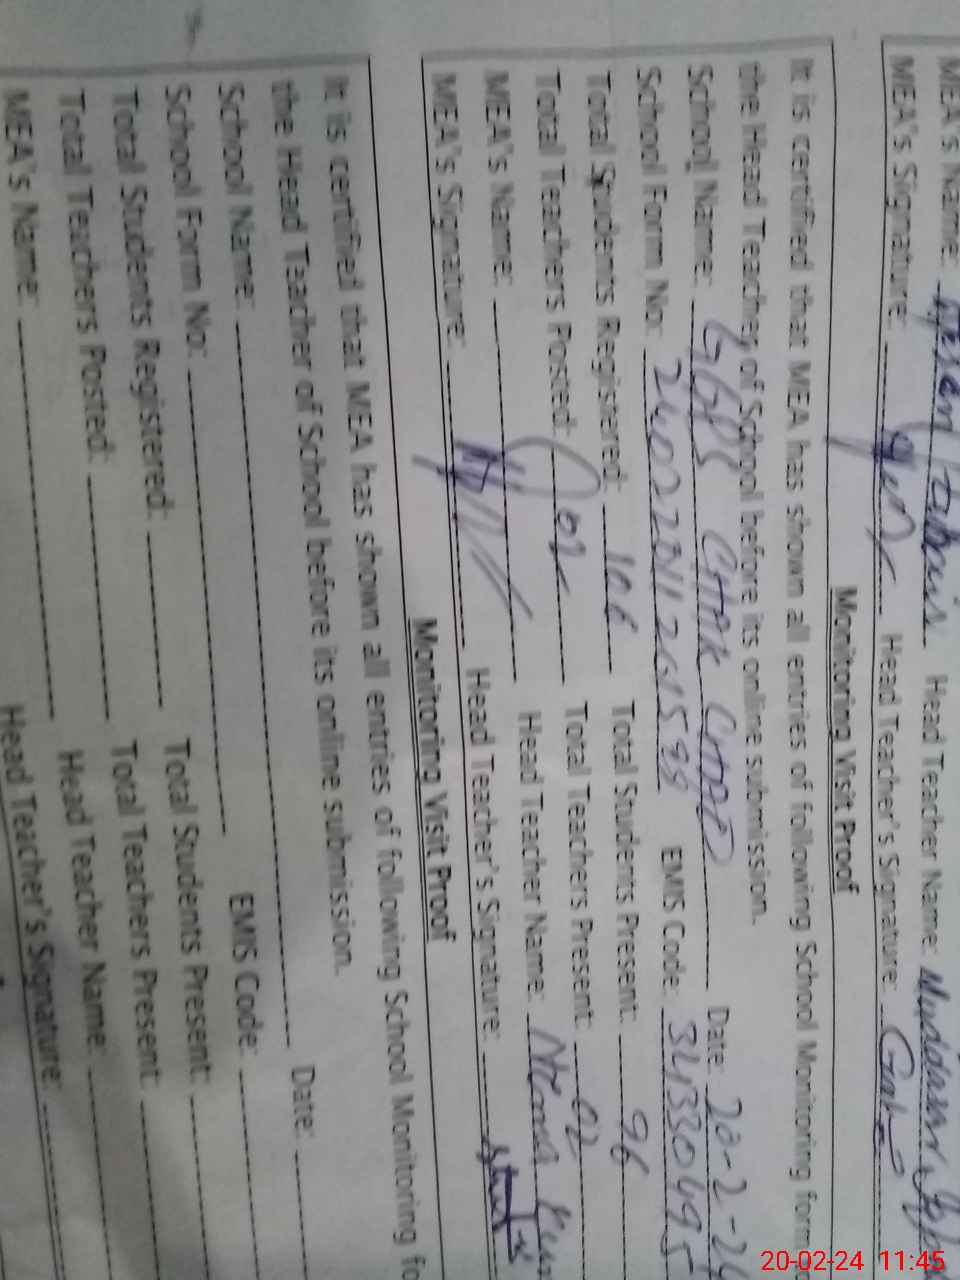 MEA's Name: Head Teacher Name:
MEA's Signature: Head Teacher's Signature:
Monitoring Visit Proof
It is certified that MEA has shown all entries of following School Monitoring form
the Head Teacher of School before its online submission.
School Name: GGPS CHAK Date: 20-2-24
School Form No: EMIS Code: 31330495
Total Students Registered: 106 Total Students Present: 96
Total Teachers Posted: 02 Total Teachers Present: 02
MEA's Name: Head Teacher Name:
MEA's Signature: Head Teacher's Signature:
Monitoring Visit Proof
It is certified that MEA has shown all entries of following School Monitoring fo
the Head Teacher of School before its online submission.
School Name: Date:
School Form No: EMIS Code:
Total Students Registered: Total Students Present:
Total Teachers Posted: Total Teachers Present:
MEA's Name: Head Teacher Name:
Head Teacher's Signature:
20-02-24 11:45